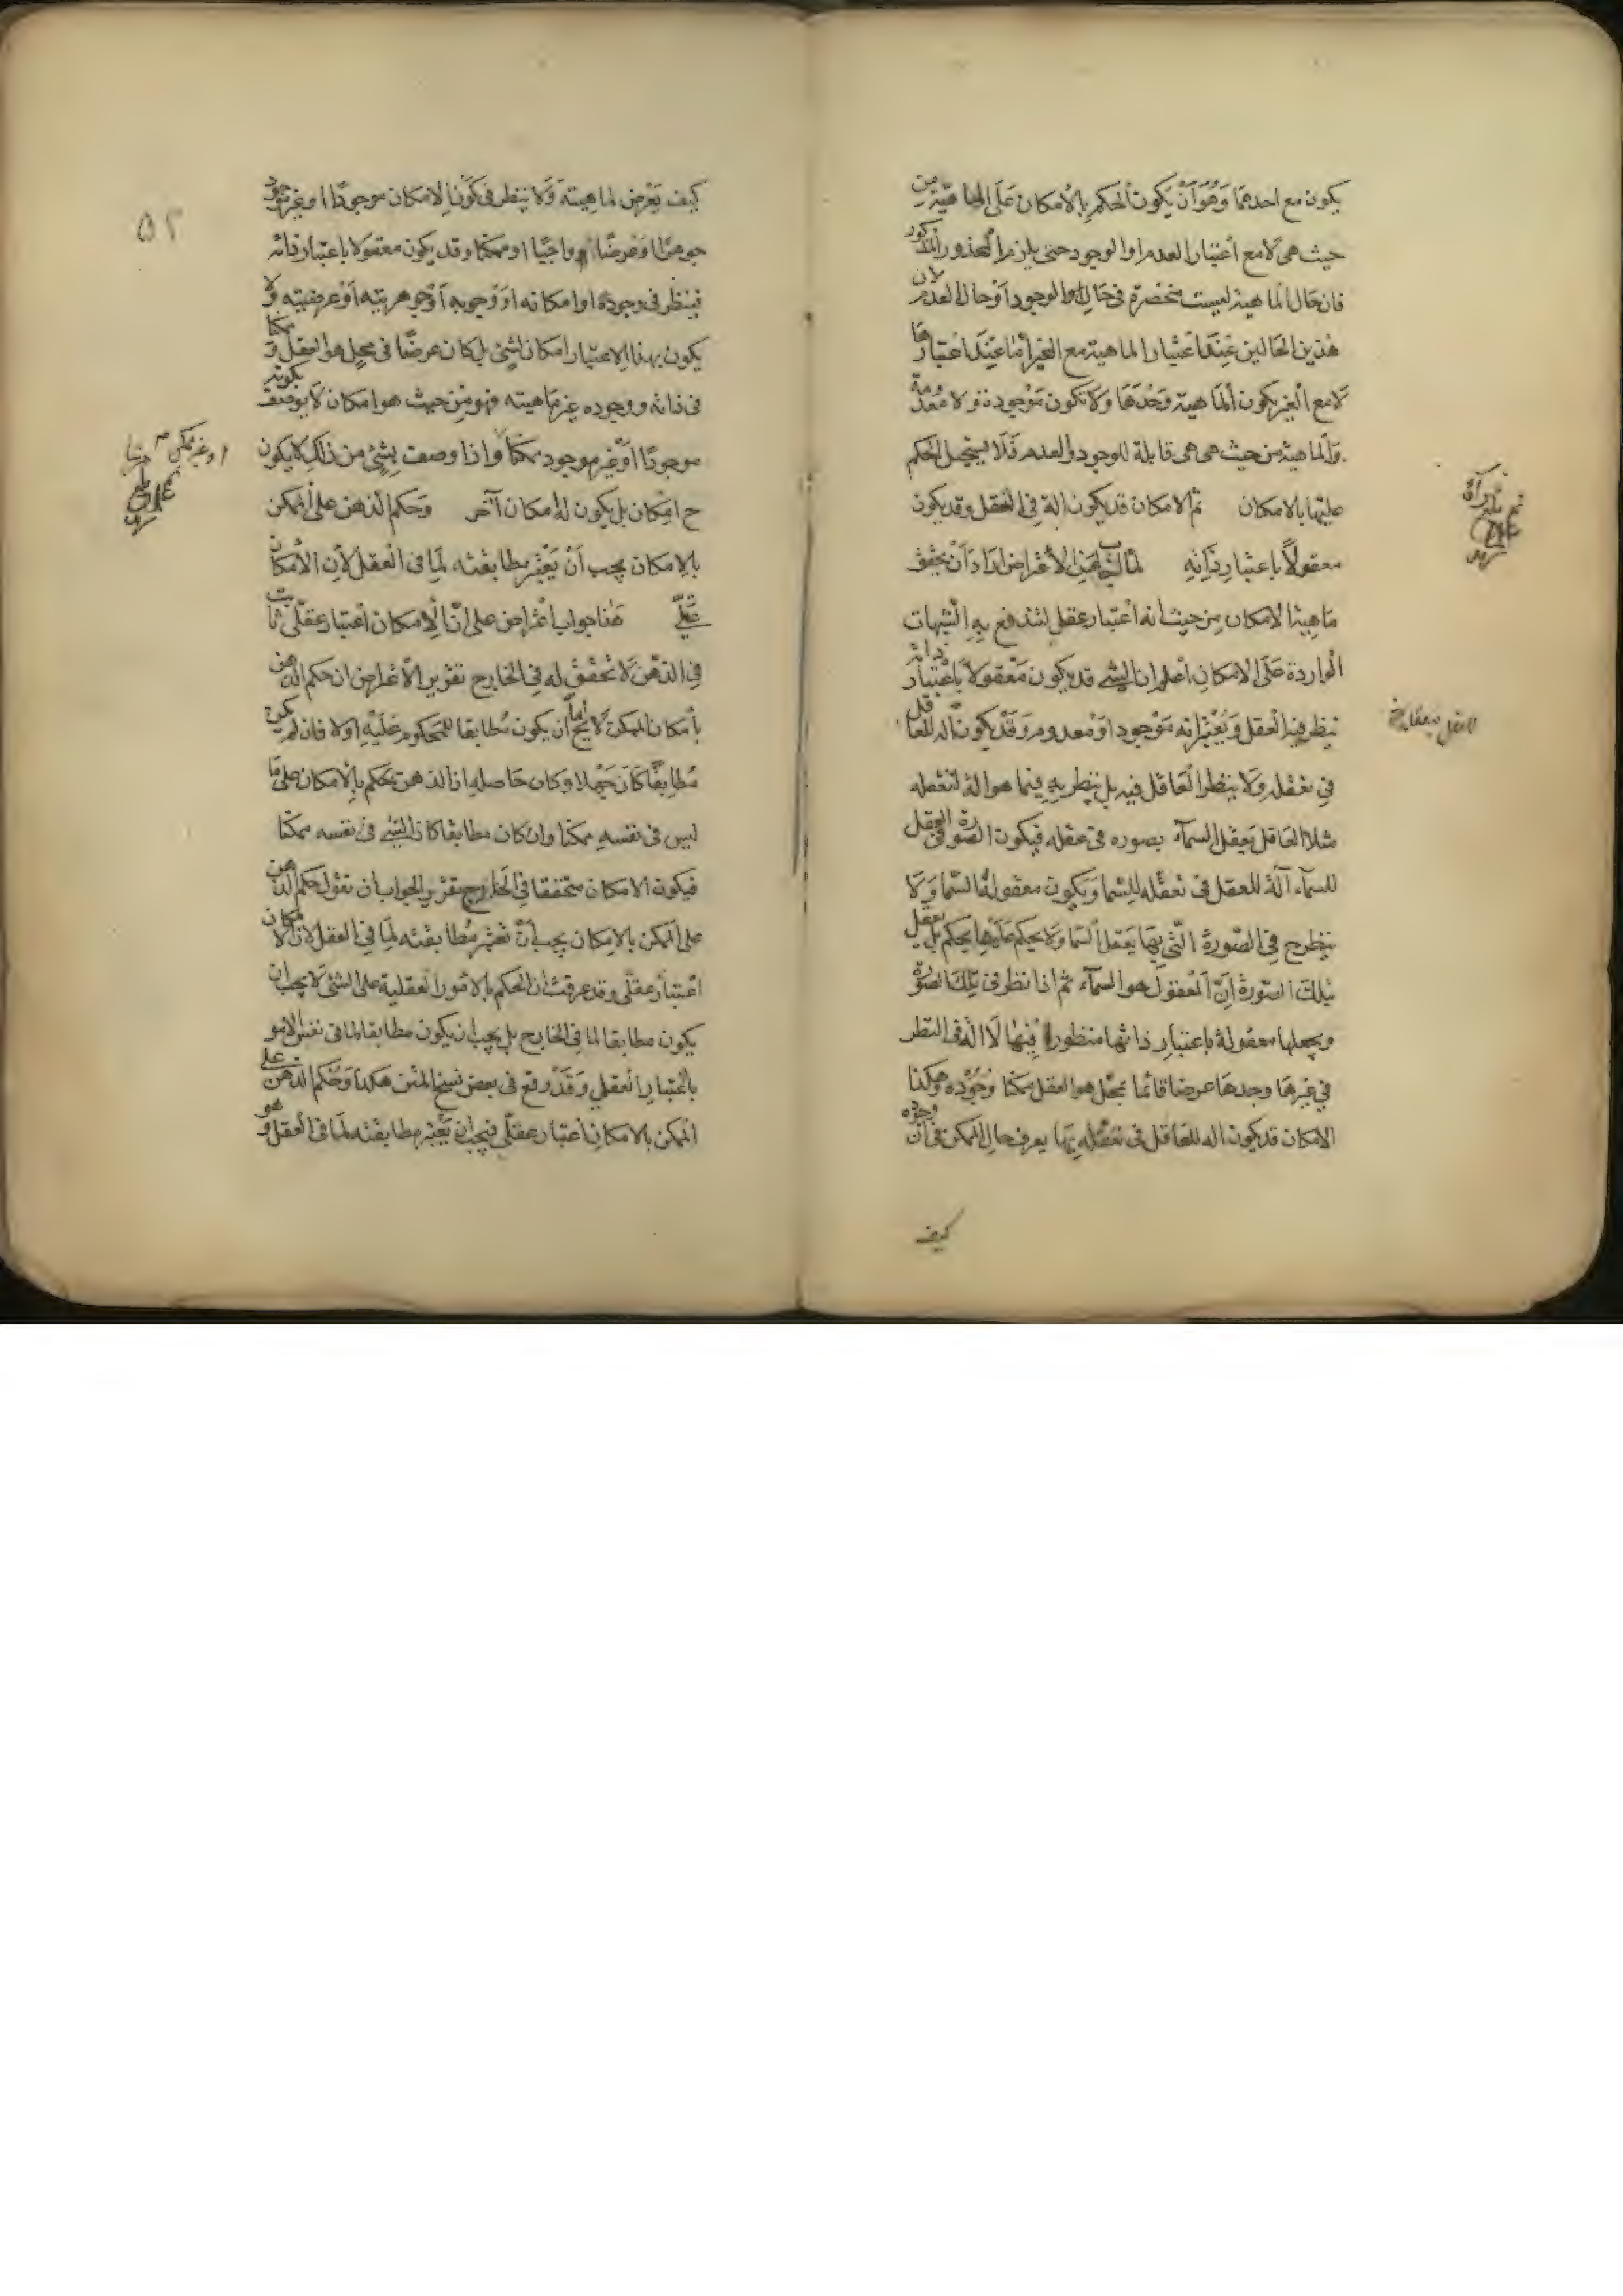 يكون مع احدهما وَهُوَ اَنْ يَكون الحكم بِالاْمكان عَلَى الماهيّة من
حيث هى لاَ مع اعتبار العدم او الوجود حتى يلزم المحذور المذكور
فان حال الماهية ليست منحصرة فى حال الوجود اَوْ حال العدم لان
هٰذين الحالين عِنْدَ اعْتبار الماهية مع الغير امّا عِنْدَ اعتبارها
لاَ مع الغير يكون الماهية وَحْدَهَا وَلاَ تكون مَوْجودة وَلا معدومة
وَالماهية من حيث هى هى قابلة للوجود والعدم فَلَا يستحيل الحكم
عليها بالامكان ثم الامكان قد يكون الة فى التعقل وقد يكون
معقولاً باعتبار ذَاتِهِ لما اجاب عن الاعْتراض اراد اَنْ يحقق
ماهية الامكان مِن حيث انه اعتبار عقلى لتندفع بِهِ الشبهات
الواردة عَلَى الامكان اعلم ان الشئ قد يكون مَعْقولاً بِاعْتبار ذاته
ينظر فيه العقل وَيَعْتبر انه مَوْجود اوْ معدوم وَقَدْ يكون الة للعاقل
فى تعقله وَلَا ينظر العَاقل فيه بل ينظر بِهِ فيما هو الة لتعقله
مثلا العَاقل يعقل السمآء بصورة فى عقله فيكون الصورة فى العقل
للسمآء آلة للعقل فى تعقّله للسماء وَيكون معقوله السماء وَلَا
ينظر ح فى الصّورة الّتى بِهَا يَعقل السماء وَلا يحكم عَلَيْها بحكم بل يعقل
بتلك الصّورة اَنّ المعْقول هو السمآء ثم اذا نظر فى تلك الصّورة
ويجعلها معقولة باعتبار ذاتها منظورا فِيْها لَا الة فى النظر
فى غيرها وجدها عرضا قائما بمحل هو العقل ممكنا وُجُوْده وَهكذا
الامكان قد يكون الة للعاقل فى تعقله بِهَا يعرف حال الممكن فى اَن وجوده
كيف
كيف يَعْرض لماهيته وَلَا ينظر فى كَوْن الامكان موجودًا او غير موجود
جوهرًا اوْ عرضًا او واجبًا او ممكنا وقد يكون معقولا باعتبار ذاته
فينظر فى وجوده او امكانه او وُجوبه اَوْ جوهريته اَوْ عرضيته وَلا
يكون بهذا الاعتبار امكان لشئ بل كان عرضًا فى محل هو العقل وَممكنا
فى ذاته ووجوده غير ماهيته فهو مِنْ حيث هو امكان لَا يوصف بكونه
موجودًا اَوْ غير موجود ممكنا وَاذا وصف بشئ من ذلك لا يكون
ح امكان بل يكون له امكان آخر وَحكم الذهن على الممكن
بالامكان يجب اَنْ يَعْتبر مطابقته لِمَا فى الْعقل لاَن الْامكان
عقلىّ هٰذا جواب اعْتراض على انّ الْامكان اعتبار عقلىّ ثابت
فى الذهن لَا تحقق له فى الخارج تقرير الاعْتراض ان حكم الذهن
بامكان الممكن لَا يخ اما اَن يكون مُطابقا للمحكوم عَلَيْهِ اولا فان لم يكن
مُطابِقًا كَانَ جَهْلا وكان حَاصله ان الذهن يحكم بِالْامكان على مَا
ليس فى نفسهِ ممكنا وان كان مطابقا كان الشئ فى نفسه ممكنا
فيكون الامكان متحققا فى الْخارج تقرير الجواب ان نقول حكم الذهن
على الممكن بالامكان يجب اَنْ يعْتبر مُطابقته لِمَا فى العقل لان الامكان
اعتبار عقلى وقد عرفت ان الحكم بالامُور العقلية على الشئ لَا يجب ان
يكون مطابقا لما فى الخارج بل يجب ان يكون مطابقا لما فى نفس الامر
بالْاعتبار العقلى وَقَدْ وقع فى بعض نسخ المتن هكذا وَحُكم الذهن على
الممكن بالامكان اعتبار عقلى فيجب ان يَعْتبر مطابقته لِمَا فى العقل وهو
او غير ممكن
٥٢